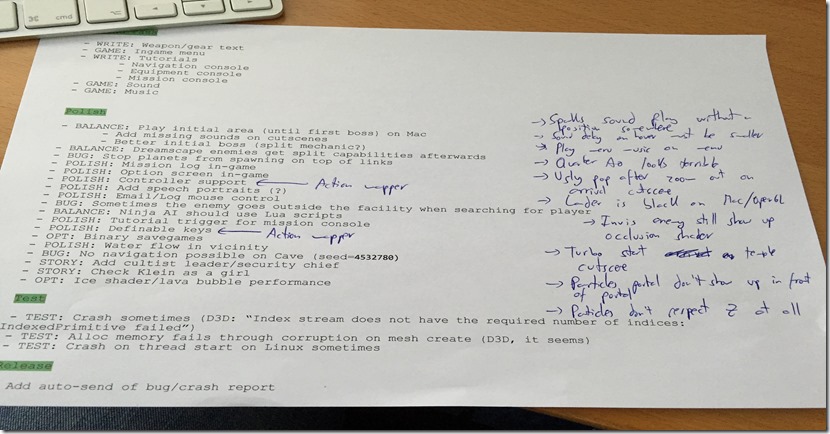 cmd
- WRITE: Weapon/gear text
- GAME: Ingame menu
- WRITE: Tutorials
- Navigation console
- Equipment console
- Mission console
- GAME: Sound
- GAME: Music
Polish
- BALANCE: Play initial area (until first boss) on Mac
- Add missing sounds on cutscenes
- Better initial boss (split mechanic?)
- BALANCE: Dreamscape enemies get split capabilities afterwards
- BUG: Stop planets from spawning on top of links
- POLISH: Mission log in-game
- POLISH: Option screen in-game
- POLISH: Controller support ← Action mapper
- POLISH: Add speech portraits (?)
- POLISH: Email/Log mouse control
- BUG: Sometimes the enemy goes outside the facility when searching for player
- BALANCE: Ninja AI should use Lua scripts
- POLISH: Tutorial trigger for mission console
- POLISH: Definable keys ← Action mapper
- OPT: Binary savegames
- POLISH: Water flow in vicinity
- BUG: No navigation possible on Cave (seed=4532780)
- STORY: Add cultist leader/security chief
- STORY: Check Klein as a girl
- OPT: Ice shader/lava bubble performance
Test
- TEST: Crash sometimes (D3D: “Index stream does not have the required number of indices:
IndexedPrimitive failed”)
- TEST: Alloc memory fails through corruption on mesh create (D3D, it seems)
- TEST: Crash on thread start on Linux sometimes
Release
Add auto-send of bug/crash report
→ sound play without
position somewhere
→ Sound delay on hover must be smaller
→ Play menu music on menu
→ Quater AO looks terrible
→ Ugly pop after zoom out on
arrival cutscene
→ is black on Mac/OpenGL
→ Invis enemy still show up
occlusion shader
→ Turbo start temple
cutscene
→ Particles portal don't show up in front
of portal
→ Particles don't respect Z at all